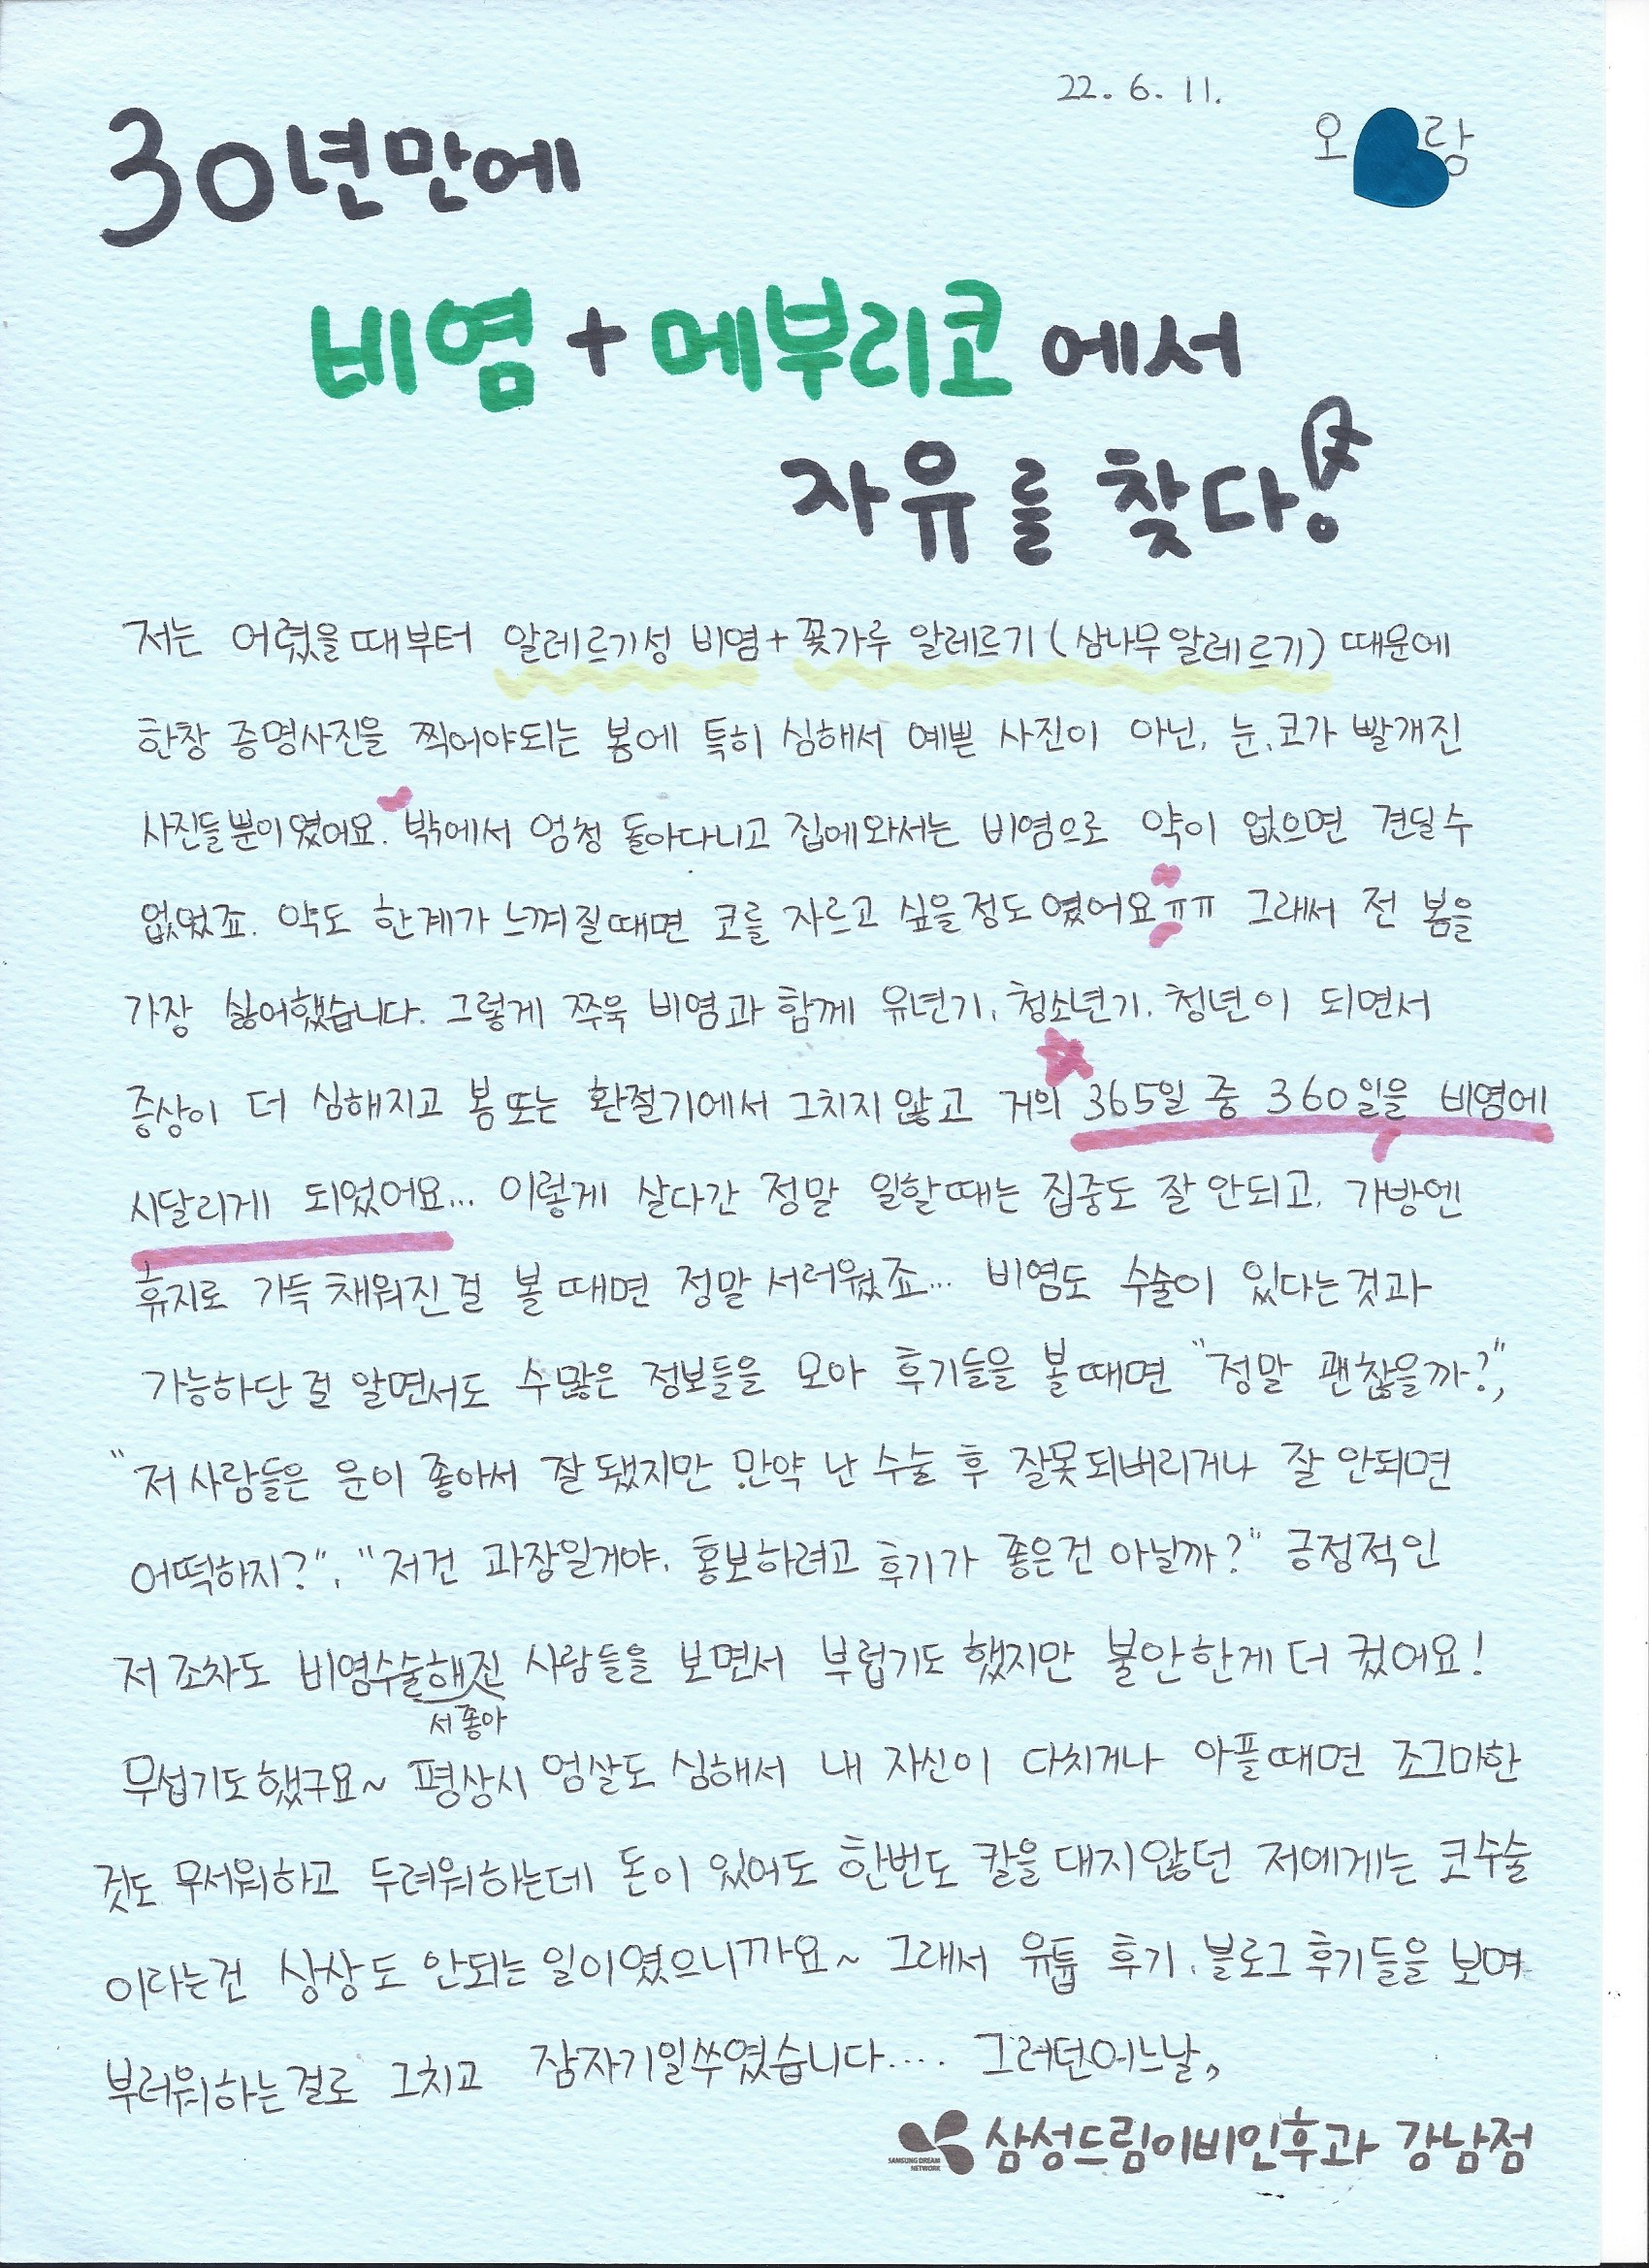 22. 6. 11.
오 랑
30년만에
비염 + 메부리코에서
자유를 찾다!
저는 어렸을때부터 알레르기성 비염+꽃가루 알레르기(삼나무알레르기) 때문에
한창 증명사진을 찍어야되는 봄에 특히 심해서 예쁜 사진이 아닌, 눈,코가 빨개진
사진들뿐이였어요. 밖에서 엄청 돌아다니고 집에와서는 비염으로 약이 없으면 견딜수
없었죠. 약도 한계가 느껴질때면 코를 자르고 싶을정도였어요ㅠㅠ 그래서 전 봄을
가장 싫어했습니다. 그렇게 쭈욱 비염과 함께 유년기, 청소년기, 청년이 되면서
증상이 더 심해지고 봄또는 환절기에서 그치지않고 거의 365일 중 360일을 비염에
시달리게 되었어요... 이렇게 살다간 정말 일할때는 집중도 잘 안되고, 가방엔
휴지로 가득 채워진걸 볼때면 정말 서러웠죠... 비염도 수술이 있다는것과
가능하단걸 알면서도 수많은 정보들을 모아 후기들을 볼때면 "정말 괜찮을까?",
"저 사람들은 운이 좋아서 잘됐지만 만약 난 수술 후 잘못되버리거나 잘 안되면
어떡하지?", "저건 과장일거야, 홍보하려고 후기가 좋은건 아닐까?" 긍정적인
저 조차도 비염수술해진 사람들을 보면서 부럽기도 했지만 불안한게 더 컸어요!
서좋아
무섭기도했구요~ 평상시 엄살도 심해서 내 자신이 다치거나 아플때면 조그마한
것도 무서워하고 두려워하는데 돈이 있어도 한번도 칼을 대지않던 저에게는 코수술
이라는건 상상도 안되는일이였으니까요~ 그래서 유튭 후기, 블로그후기들을 보며
부러워하는걸로 그치고 잠자기일쑤였습니다.... 그러던어느날,
SAMSUNG DREAM
NETWORK
삼성드림이비인후과 강남점